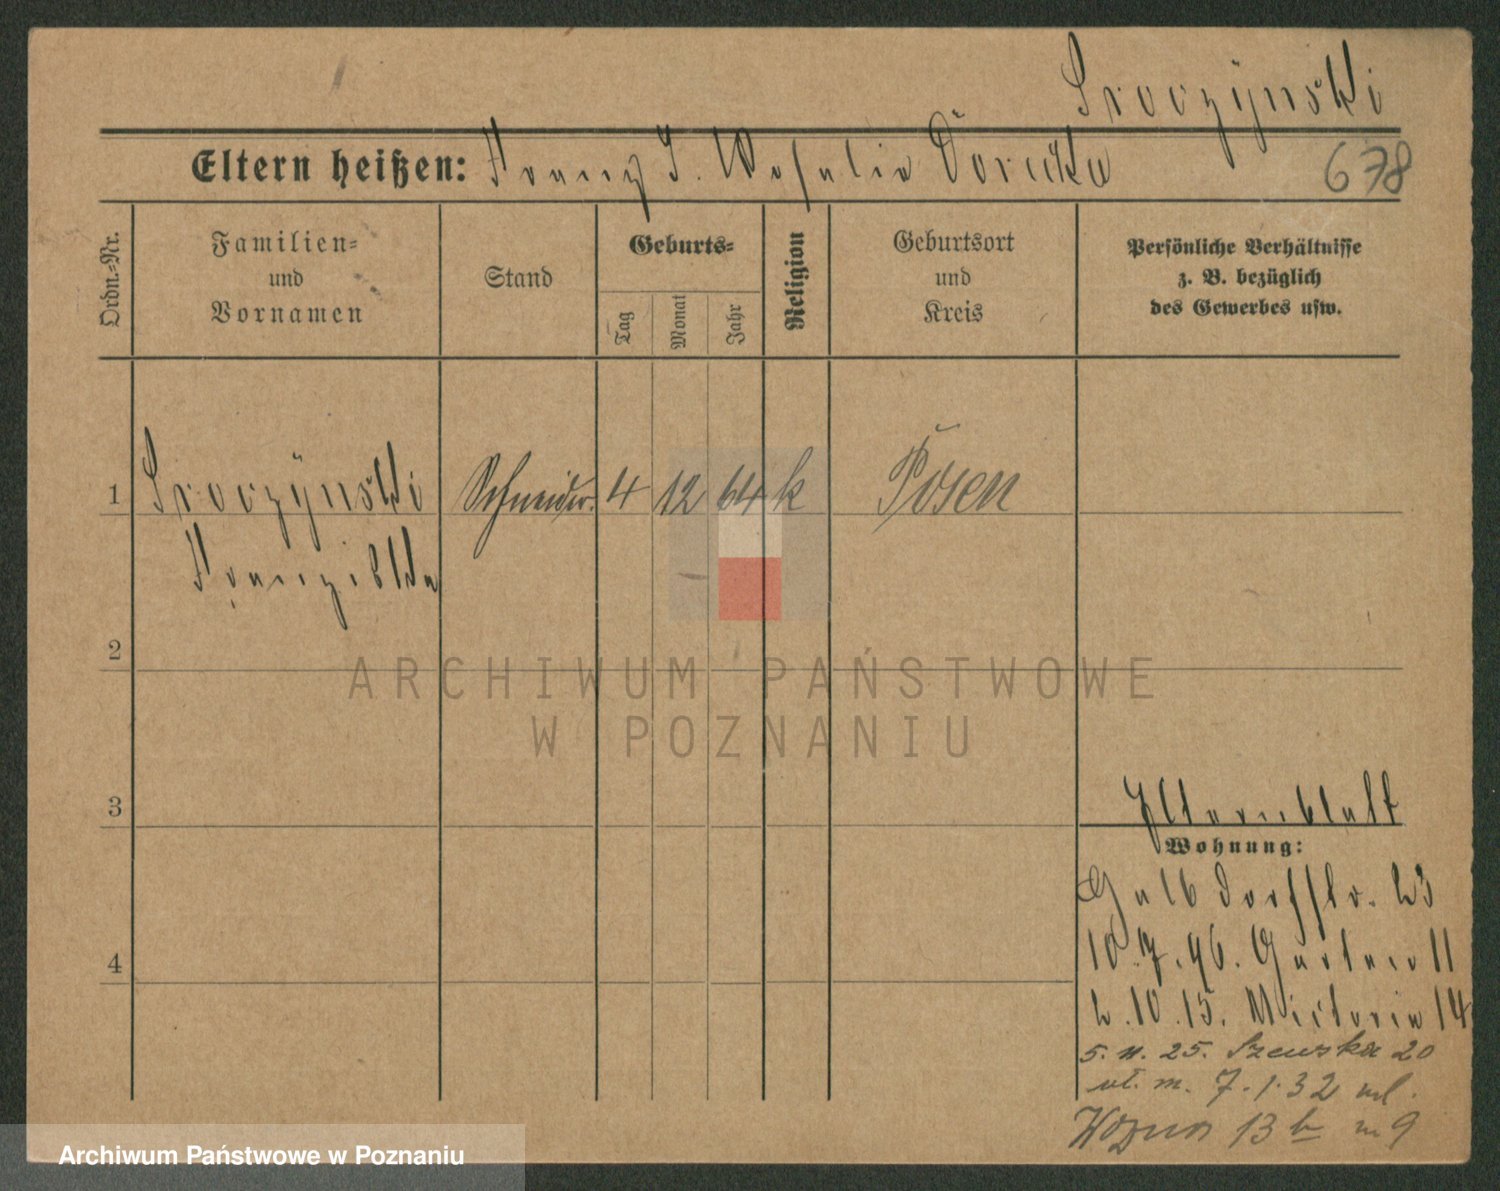 Sroczÿnski
Eltern heißen: Franz u. Rosalia Dorucka
678
Ordn.=Nr.
Familien=
und
Vornamen
Stand
Geburts=
Tag
Monat
Jahr
Religion
Geburtsort
und
Kreis
Persönliche Verhältnisse
z. B. bezüglich
des Gewerbes usw.
1 Sroczÿnski Schneider. 4 12 64 k Posen
Franziska
2
ARCHIWUM PAŃSTWOWE
W POZNANIU
3
Elternblatt
Wohnung:
Halbdorfstr. 23
4
10.7.96. Garten 11
2.10.15. Victoria 14
5. 11. 25. Szewska 20
7.1.32 ul.
Woźna 13 b m 9
Archiwum Państwowe w Poznaniu